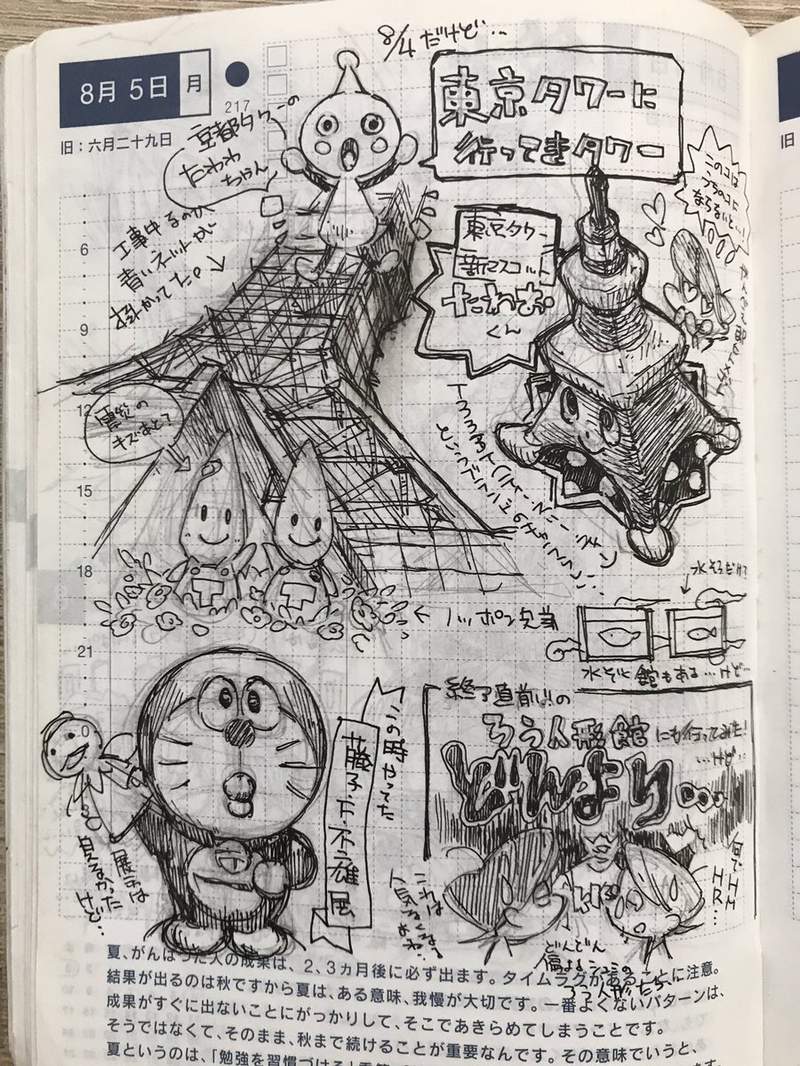 8月5日 月
217
旧：六月二十九日
8/4だけど…
東京タワーに
行ってきタワー
京都タワーの
たわわ
ちゃん
工事中なのか、
青いネットが
掛かってた。
東京タワー
新マスコット
くん
このコは
うちのコに
6
9
12
15
18
21
0
キズあと？
← ノッポン兄弟
水そうだけ？
水ぞく館もある…けど…
この時やってた
藤子・F・不二雄展
展示は
見えなかった
けど…
終了直前!!の
ろう人形館にも行ってみた!
…けど…
どんより…
これは
人気なくなる
わね…
何で
HM
HR…
どんどん
ろう人形たち
夏、がんばった人の成果は、2、3ヵ月後に必ず出ます。タイムラグがあることに注意。
結果が出るのは秋ですから夏は、ある意味、我慢が大切です。一番よくないパターンは、
成果がすぐに出ないことにがっかりして、そこであきらめてしまうことです。
そうではなくて、そのまま、秋まで続けることが重要なんです。その意味でいうと、
夏というのは、「勉強を習慣づける」